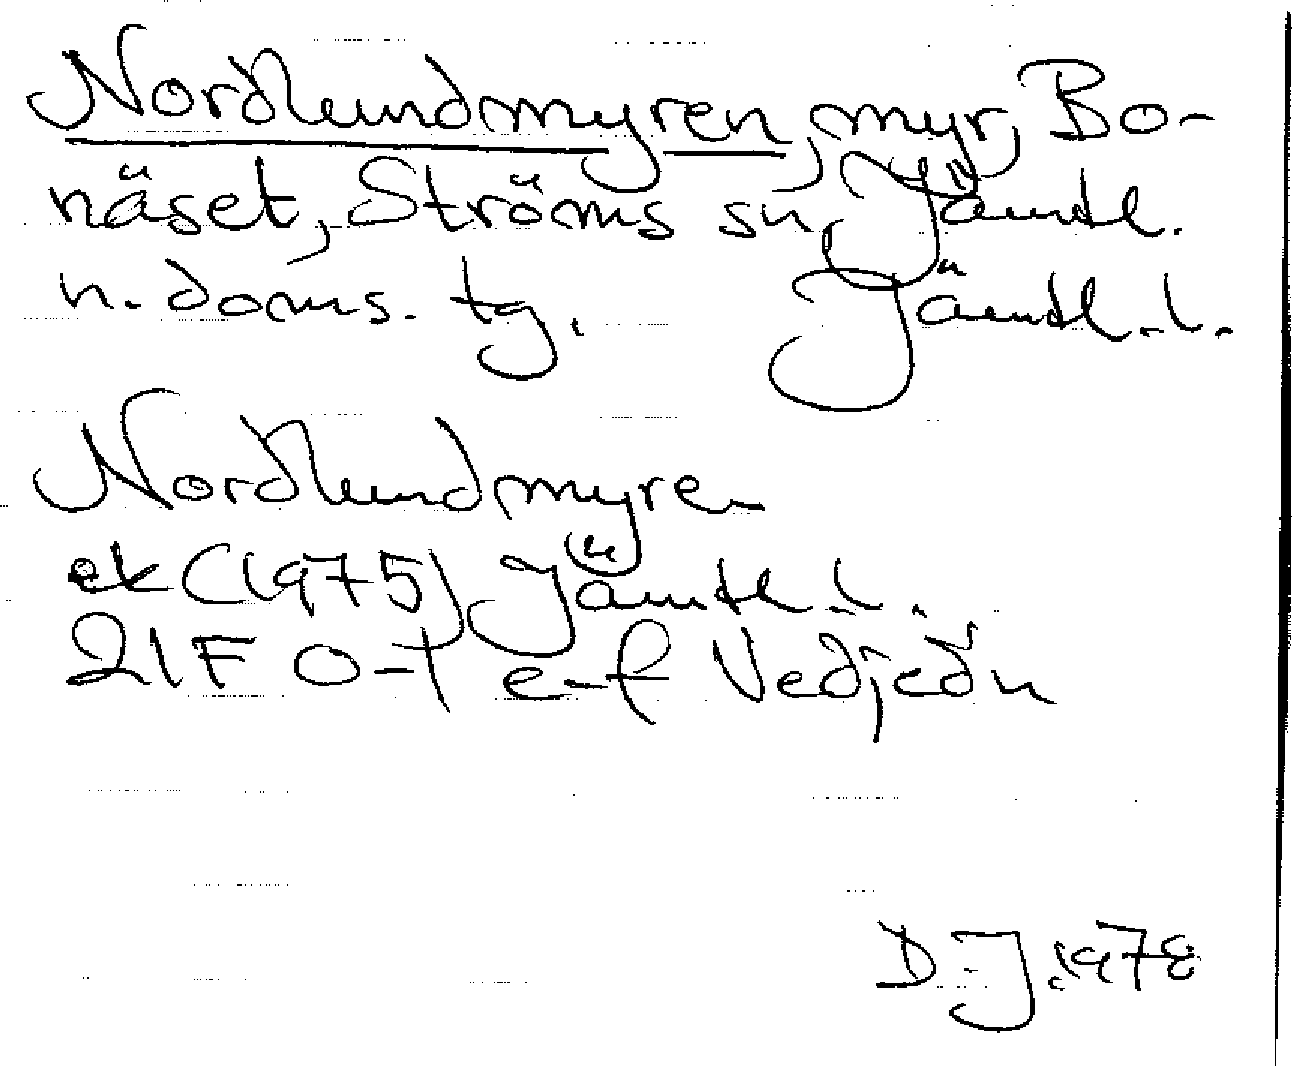 Nordlundmyren, myr, Bo-
näset, Ströms sn, Jämtl.
n. doms. tg. Jämtl. l.
Nordlundmyren
ek (1975) Jämtl. l.
21F 0-1 e-f Vedjeön
D.J. 1978